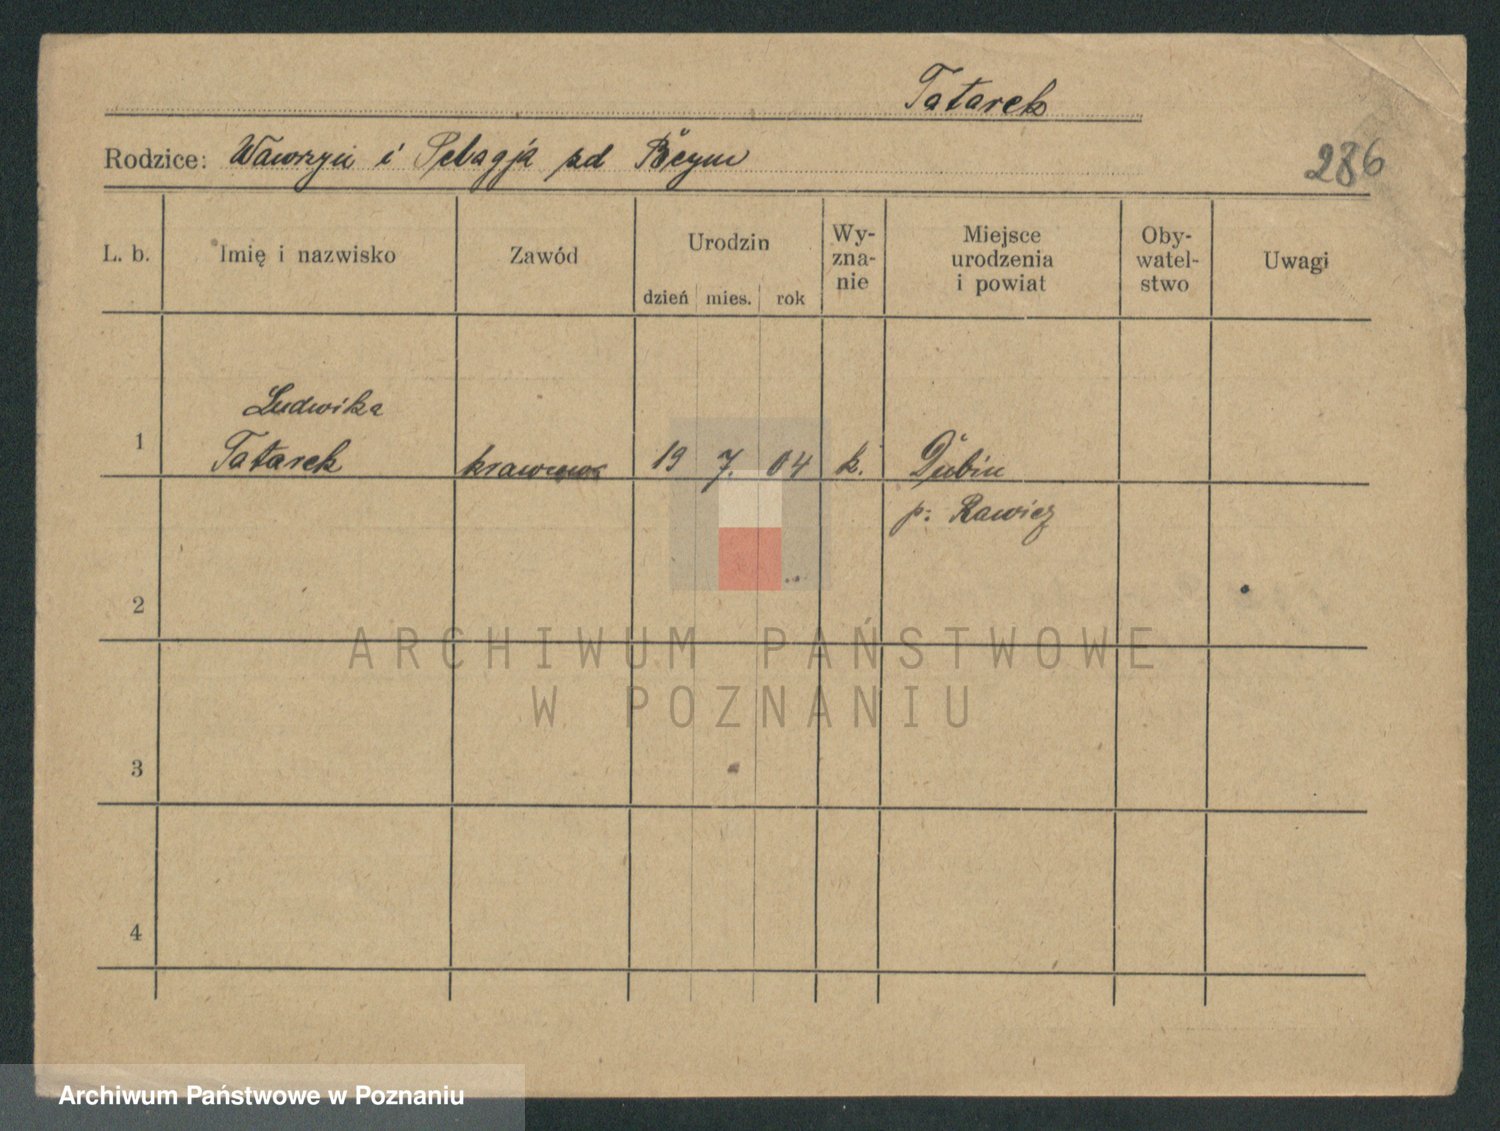 Tatarek
Rodzice: Wawrzyn i Pelagja zd
286
L. b. Imię i nazwisko Zawód Urodzin dzień mies. rok Wy-zna-nie Miejsce urodzenia i powiat Oby-watel-stwo Uwagi
Ludwika
1 Tatarek krawcowa 19 7. 04 k. Dubin
p. Rawicz
2
ARCHIWUM PAŃSTWOWE
W POZNANIU
3
4
Archiwum Państwowe w Poznaniu